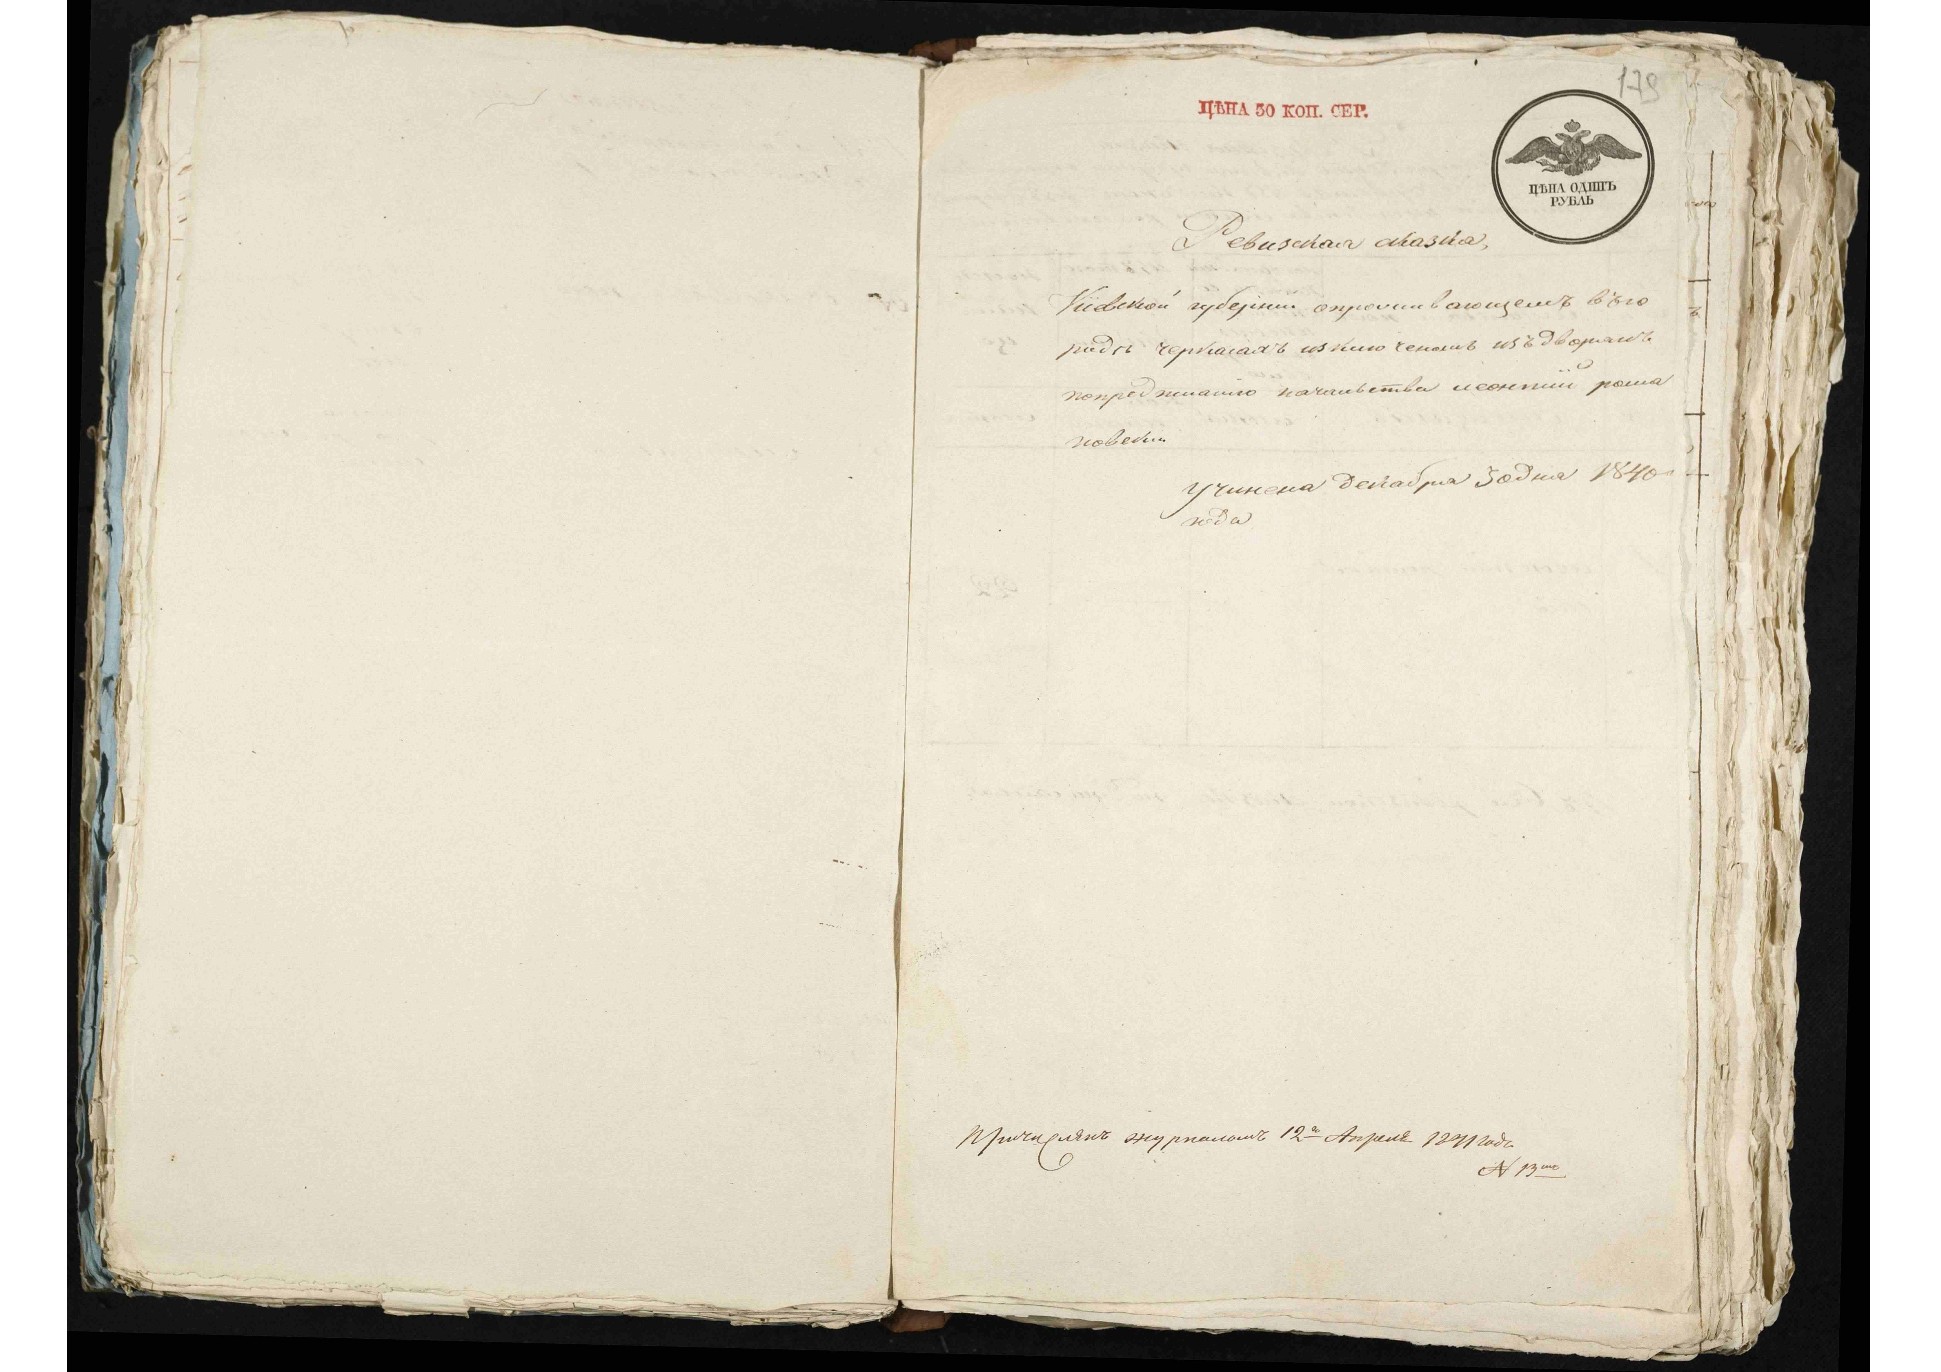 179
ЦѢНА 50 КОП. СЕР.
ЦѢНА ОДИНЪ
РУБЛЬ
Ревизская сказка,
Кіевской губерніи опроживающемъ въго
родѣ черкасахъ изключеномъ изъ дворянъ
попредписанію начальства леонтіи рома
новски
Учинена декабря 30 дня 1840
года
Причисленъ журналомъ 12го Апреля 1841 года
№ 13